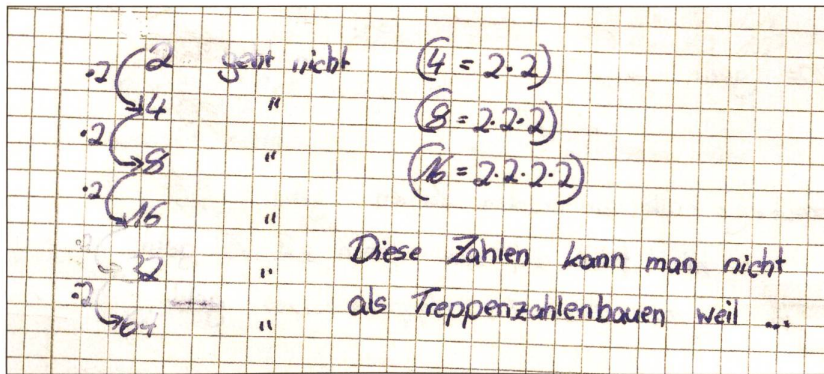 ·2 2 geht nicht (4 = 2·2)
4 " (8 = 2·2·2)
·2 8 " (16 = 2·2·2·2)
·2 16 "
32 " Diese Zahlen kann man nicht
·2 64 " als Treppenzahlenbauen weil ...